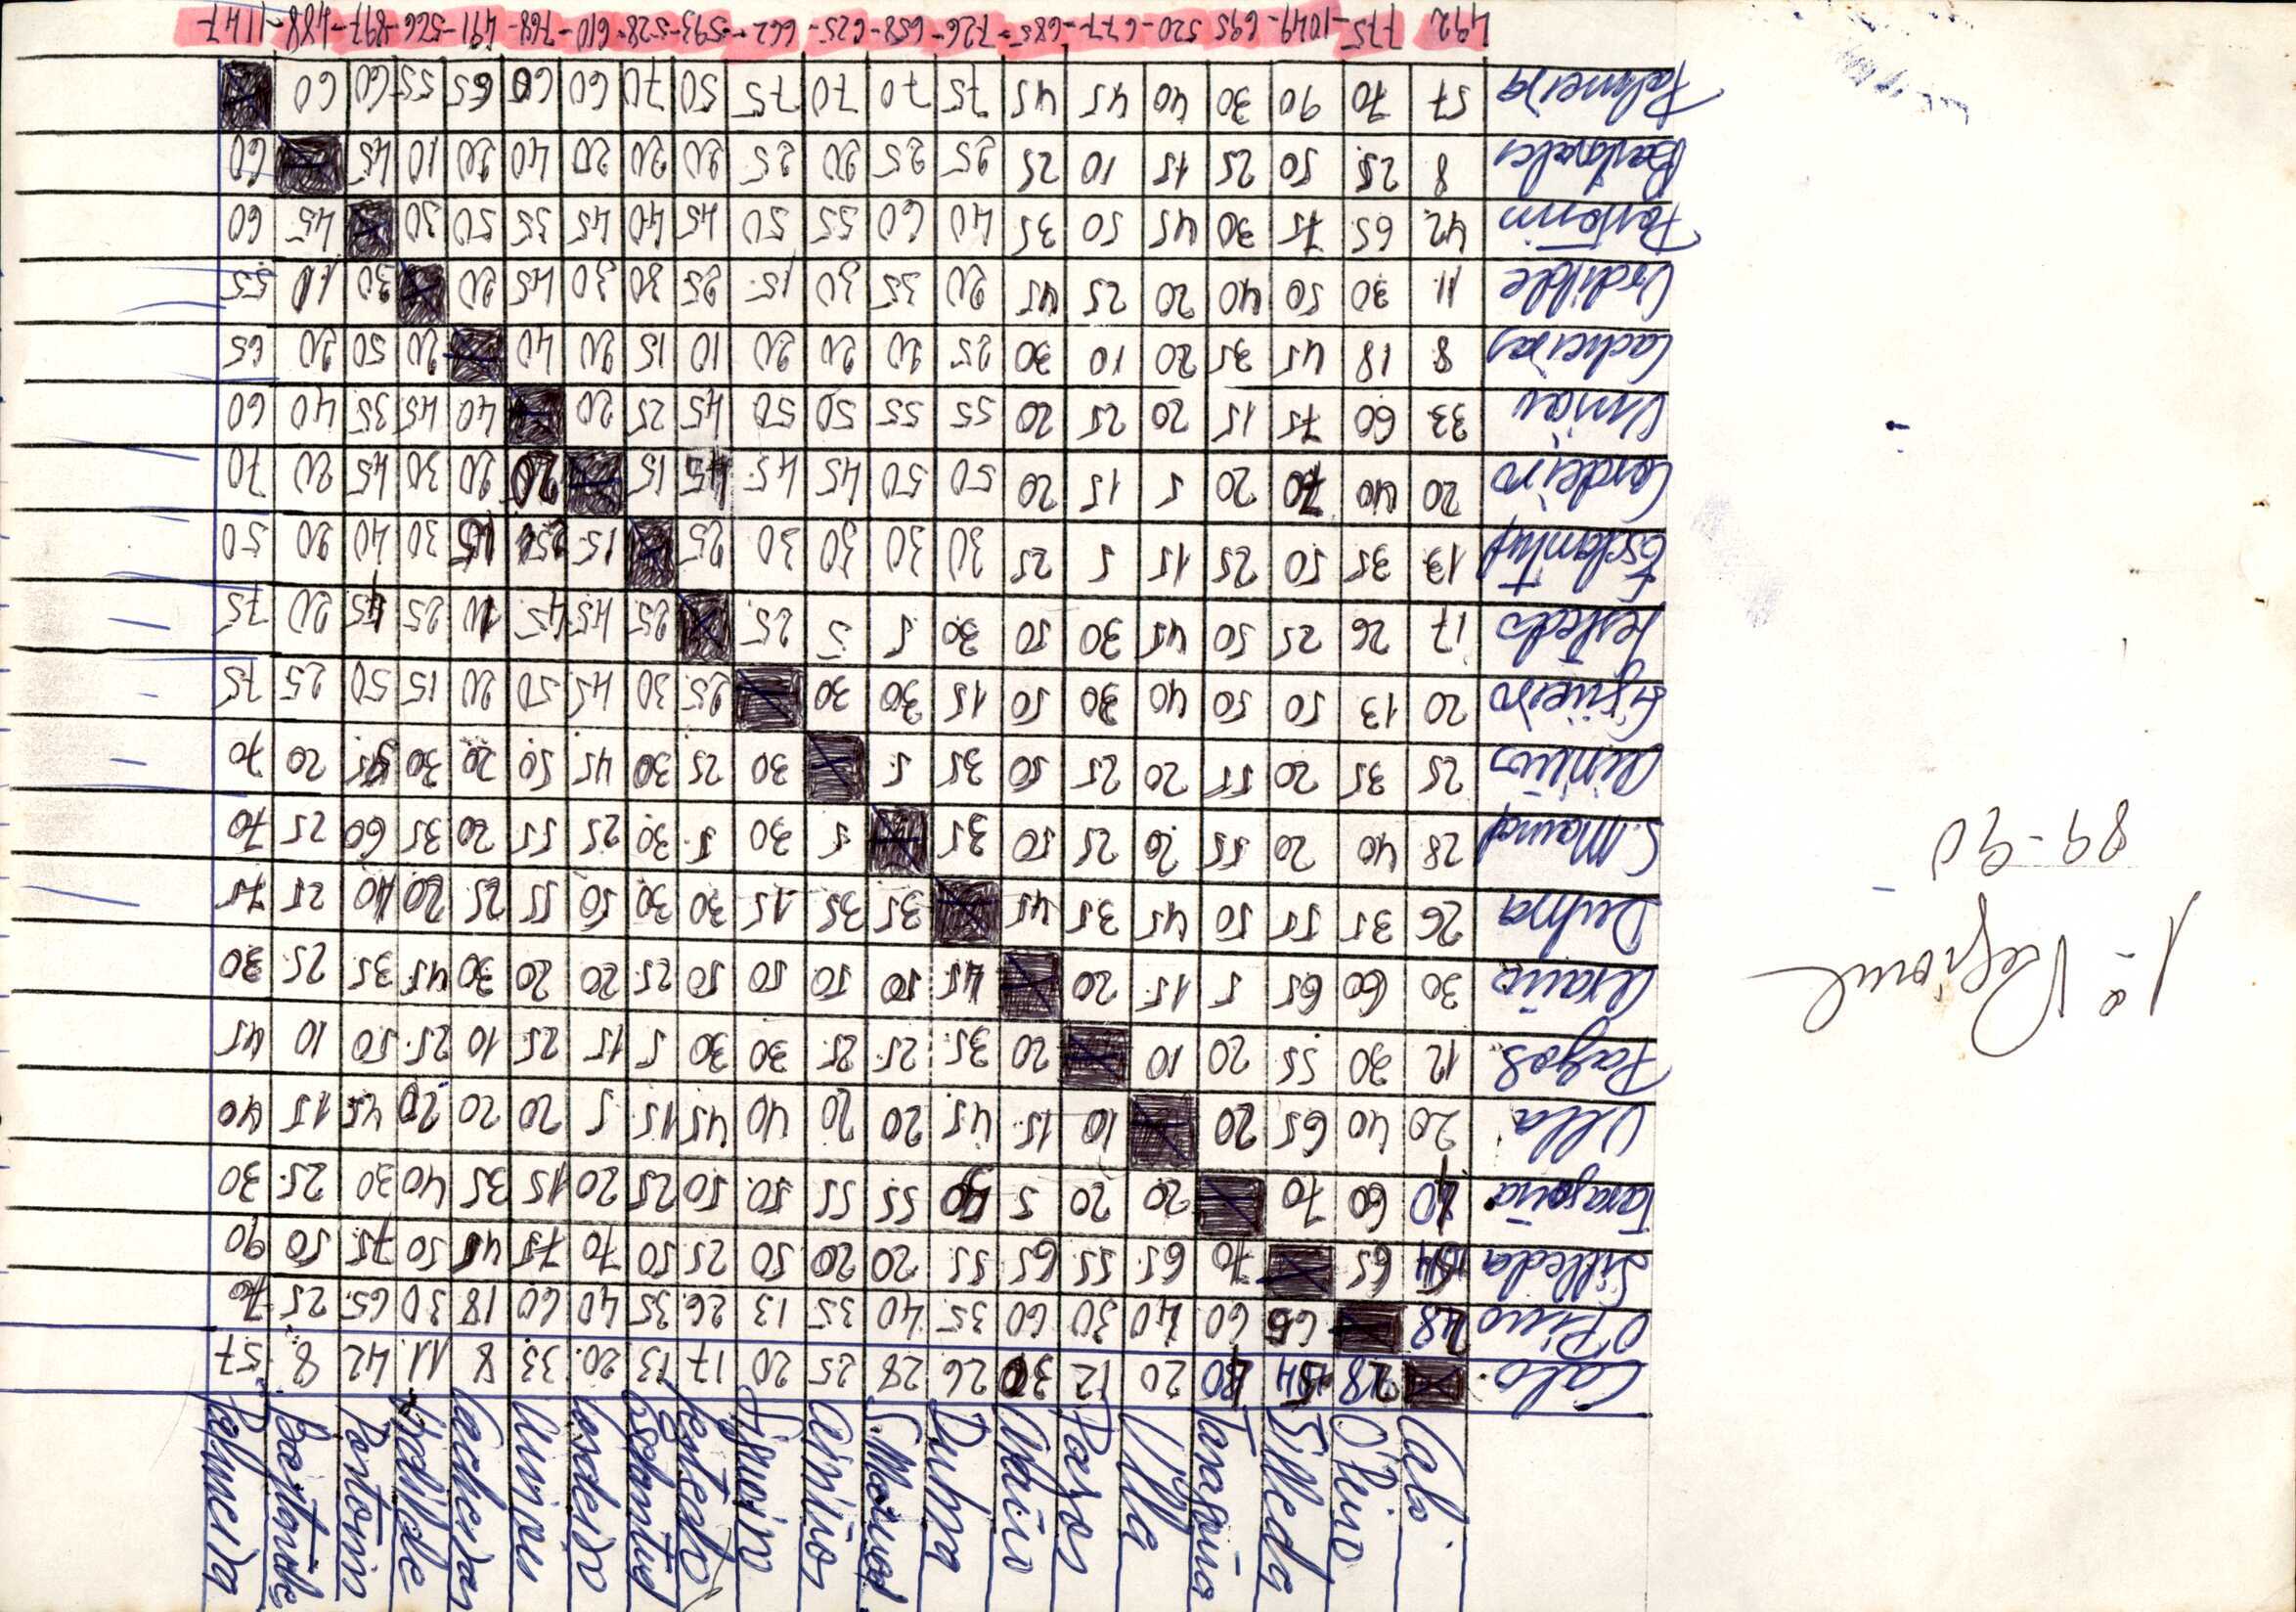 1ª Regional
89-90
Calo O'Pino Silleda Taragoña Ulla Araño Dubra Sigueiro Esclavitud Cordeiro Cacheiras Urdilde Portosin Palmeira
Calo 28 54 40 20 12 30 26 28 25 20 17 13 20 33 8 11 42 8 57
O'Pino 28 65 60 40 30 60 35 40 35 13 26 35 40 60 18 30 65 25 70
Silleda 54 65 70 65 55 65 55 20 20 50 25 50 70 75 45 50 75 50 90
Taragoña 40 60 70 20 20 5 50 55 55 50 50 25 20 15 35 40 30 25 30
Ulla 20 40 65 20 10 15 45 20 20 40 45 15 5 20 20 20 45 15 40
12 30 55 20 10 20 35 25 25 30 30 5 15 25 10 25 50 10 45
Araño 30 60 65 5 15 20 45 50 50 50 50 25 20 20 30 45 35 25 30
Dubra 26 35 55 50 45 35 45 35 35 15 30 30 50 55 25 20 40 25 75
28 40 20 55 20 25 50 35 5 30 5 30 25 55 20 35 60 25 70
25 35 20 55 20 25 50 35 5 30 25 30 45 50 20 30 45 20 70
Sigueiro 20 13 50 50 40 30 50 15 30 30 25 30 45 50 20 15 50 25 75
17 26 25 50 45 30 50 30 5 5 25 25 45 45 10 25 45 20 75
Esclavitud 13 35 50 25 15 5 25 30 30 30 30 25 15 25 15 30 40 20 50
Cordeiro 20 40 70 20 5 15 20 50 50 45 45 45 15 20 20 30 45 20 70
33 60 75 15 20 25 20 55 55 50 50 45 25 20 40 45 35 40 60
Cacheiras 8 18 45 35 20 10 30 25 20 20 20 10 15 20 40 20 50 20 65
Urdilde 11 30 50 40 20 25 45 20 35 30 15 25 30 30 45 20 30 10 55
Portosin 42 65 75 30 45 50 35 40 60 55 50 45 40 45 35 50 30 45 60
8 25 50 25 15 10 25 25 25 20 25 20 20 20 40 20 10 45 60
Palmeira 57 70 90 30 40 45 45 75 70 70 75 50 70 60 60 65 55 60 60
492 775-1049-695 520-677-685-726-658-625-662-593-528-610-768-491-566-897-488-1147